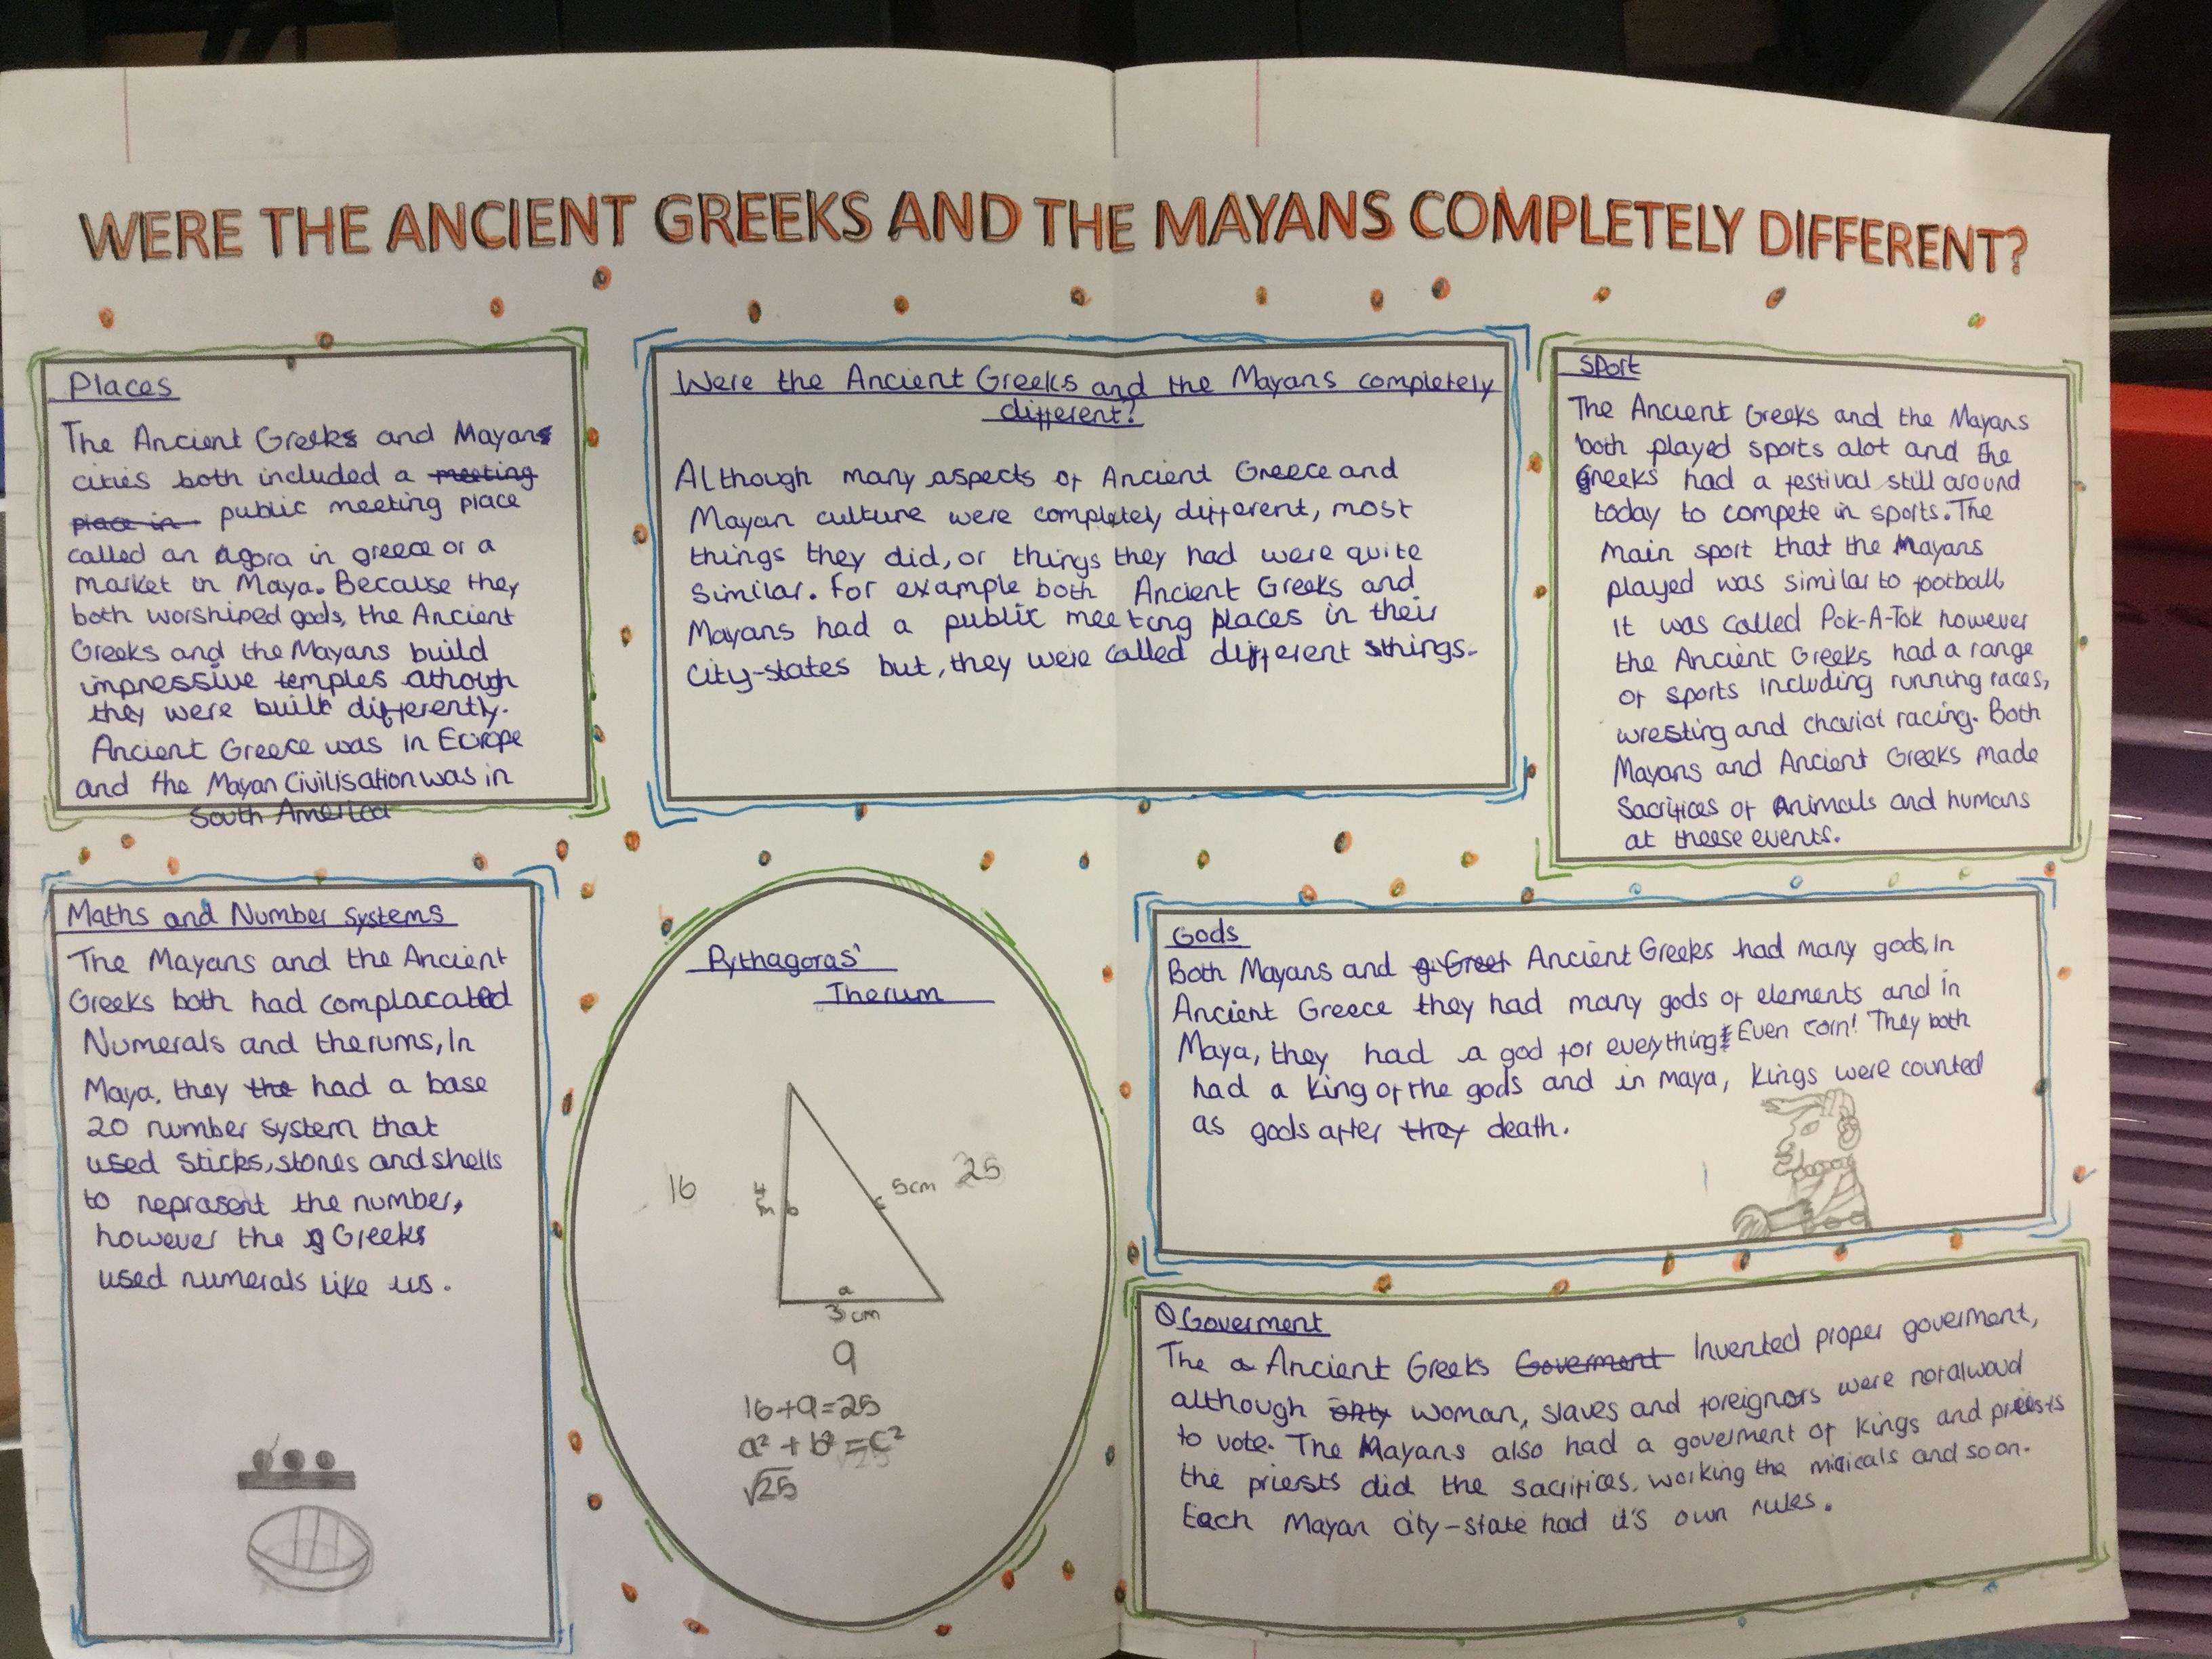 WERE THE ANCIENT GREEKS AND THE MAYANS COMPLETELY DIFFERENT?
Places
The Ancient Greeks and Mayans
cities both included a meeting
place in public meeting place
called an agora in greece or a
market in Maya. Because they
both worshiped gods, the Ancient
Greeks and the Mayans build
impressive temples athough
they were built differently.
Ancient Greece was in Europe
and the Mayan Civilisation was in
South America
Were the Ancient Greeks and the Mayans completely
different?
Although many aspects of Ancient Greece and
Mayan culture were completely different, most
things they did, or things they had were quite
similar. For example both Ancient Greeks and
Mayans had a public meeting places in their
city-states but, they were called different things.
Sport
The Ancient Greeks and the Mayans
both played sports alot and the
greeks had a festival still around
today to compete in sports. The
main sport that the Mayans
played was similar to football,
it was called Pok-A-Tok however
the Ancient Greeks had a range
of sports including running races,
wresting and chariot racing. Both
Mayans and Ancient Greeks made
Sacrifices of Animals and humans
at theese events.
Maths and Number Systems
The Mayans and the Ancient
Greeks both had complacated
Numerals and therums, In
Maya, they the had a base
20 number system that
used Sticks, stones and shells
to reprasent the number,
however the g Greeks
used numerals like us.
Pythagoras'
Therum
16
4cm
b
c
5cm
25
a
3cm
9
16+9=25
a² + b² = c²
√25
√25
Gods
Both Mayans and Ancient Greeks had many gods, in
Ancient Greece they had many gods of elements and in
Maya, they had a god for everything! Even corn! They both
had a king of the gods and in maya, kings were counted
as gods after they death.
Goverment
The a Ancient Greeks Goverment Invented proper goverment,
although only woman, slaves and foreignors were not alwoud
to vote. The Mayans also had a goverment of kings and priests
the priests did the sacrifices, working the and so on.
Each Mayan city-state had it's own rules.